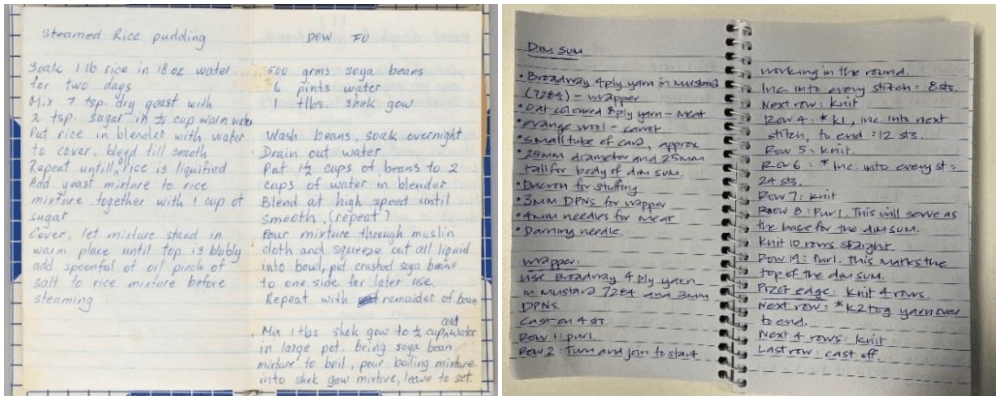 Steamed Rice pudding
Soak 1 lb rice in 18 oz water
for two days
Mix 7 tsp. dry yeast with
2 tsp. sugar in ½ cup warm water
Put rice in blender with water
to cover, blend till smooth
Repeat untill all rice is liquified
Add yeast mixture to rice
mixture together with 1 cup of
sugar
Cover, let mixture stand in
warm place until top is bubly
add spoonful of oil pinch of
salt to rice mixture before
steaming
DOW FU
500 grms soya beans
6 pints water
1 tlbs. shek gow
Wash beans, soak overnight
Drain out water
Put 1½ cups of beans to 2
cups of water in blender
Blend at high speed until
smooth, (repeat?
Pour mixture through muslin
cloth and squeeze out all liquid
into bowl, put crushed soya beans
to one side for later use.
Repeat with remainder of bean
Mix 1 tlbs shek gow to ½ cup cold water
in large pot. bring soya bean
mixture to boil, pour boiling mixture
into shek gow mixture, leave to set.
DIM SUM
• Broadway 4ply yarn in mustard
(7284) - wrapper
• Oat coloured 8ply yarn - meat
• orange wool - carrot
• small tube of card, approx
25mm diameter and 25mm
tall for body of dim sum.
• Dacron for stuffing
• 3MM DPNs for wrapper
• 4MM needles for meat
• Darning needle.
Wrapper:
Use Broadway 4 ply yarn
in mustard 7284 and 3mm
DPNs.
Cast on 4 sts
Row 1: purl.
Row 2: Turn and join to start
working in the round.
Inc into every stitch = 8 sts.
Next row: knit
Row 4: *K1, inc into next
stitch, to end = 12 sts.
Row 5: knit.
Row 6: * inc. into every st =
24 sts.
Row 7: knit
Row 8: Purl. This will serve as
the base for the dim sum.
Knit 10 rows straight.
Row 19: Purl. This marks the
top of the dim sum.
Picot edge: knit 4 rows.
Next row: *K2tog yarn over
to end.
Next 4 rows: knit
Last row: cast off.